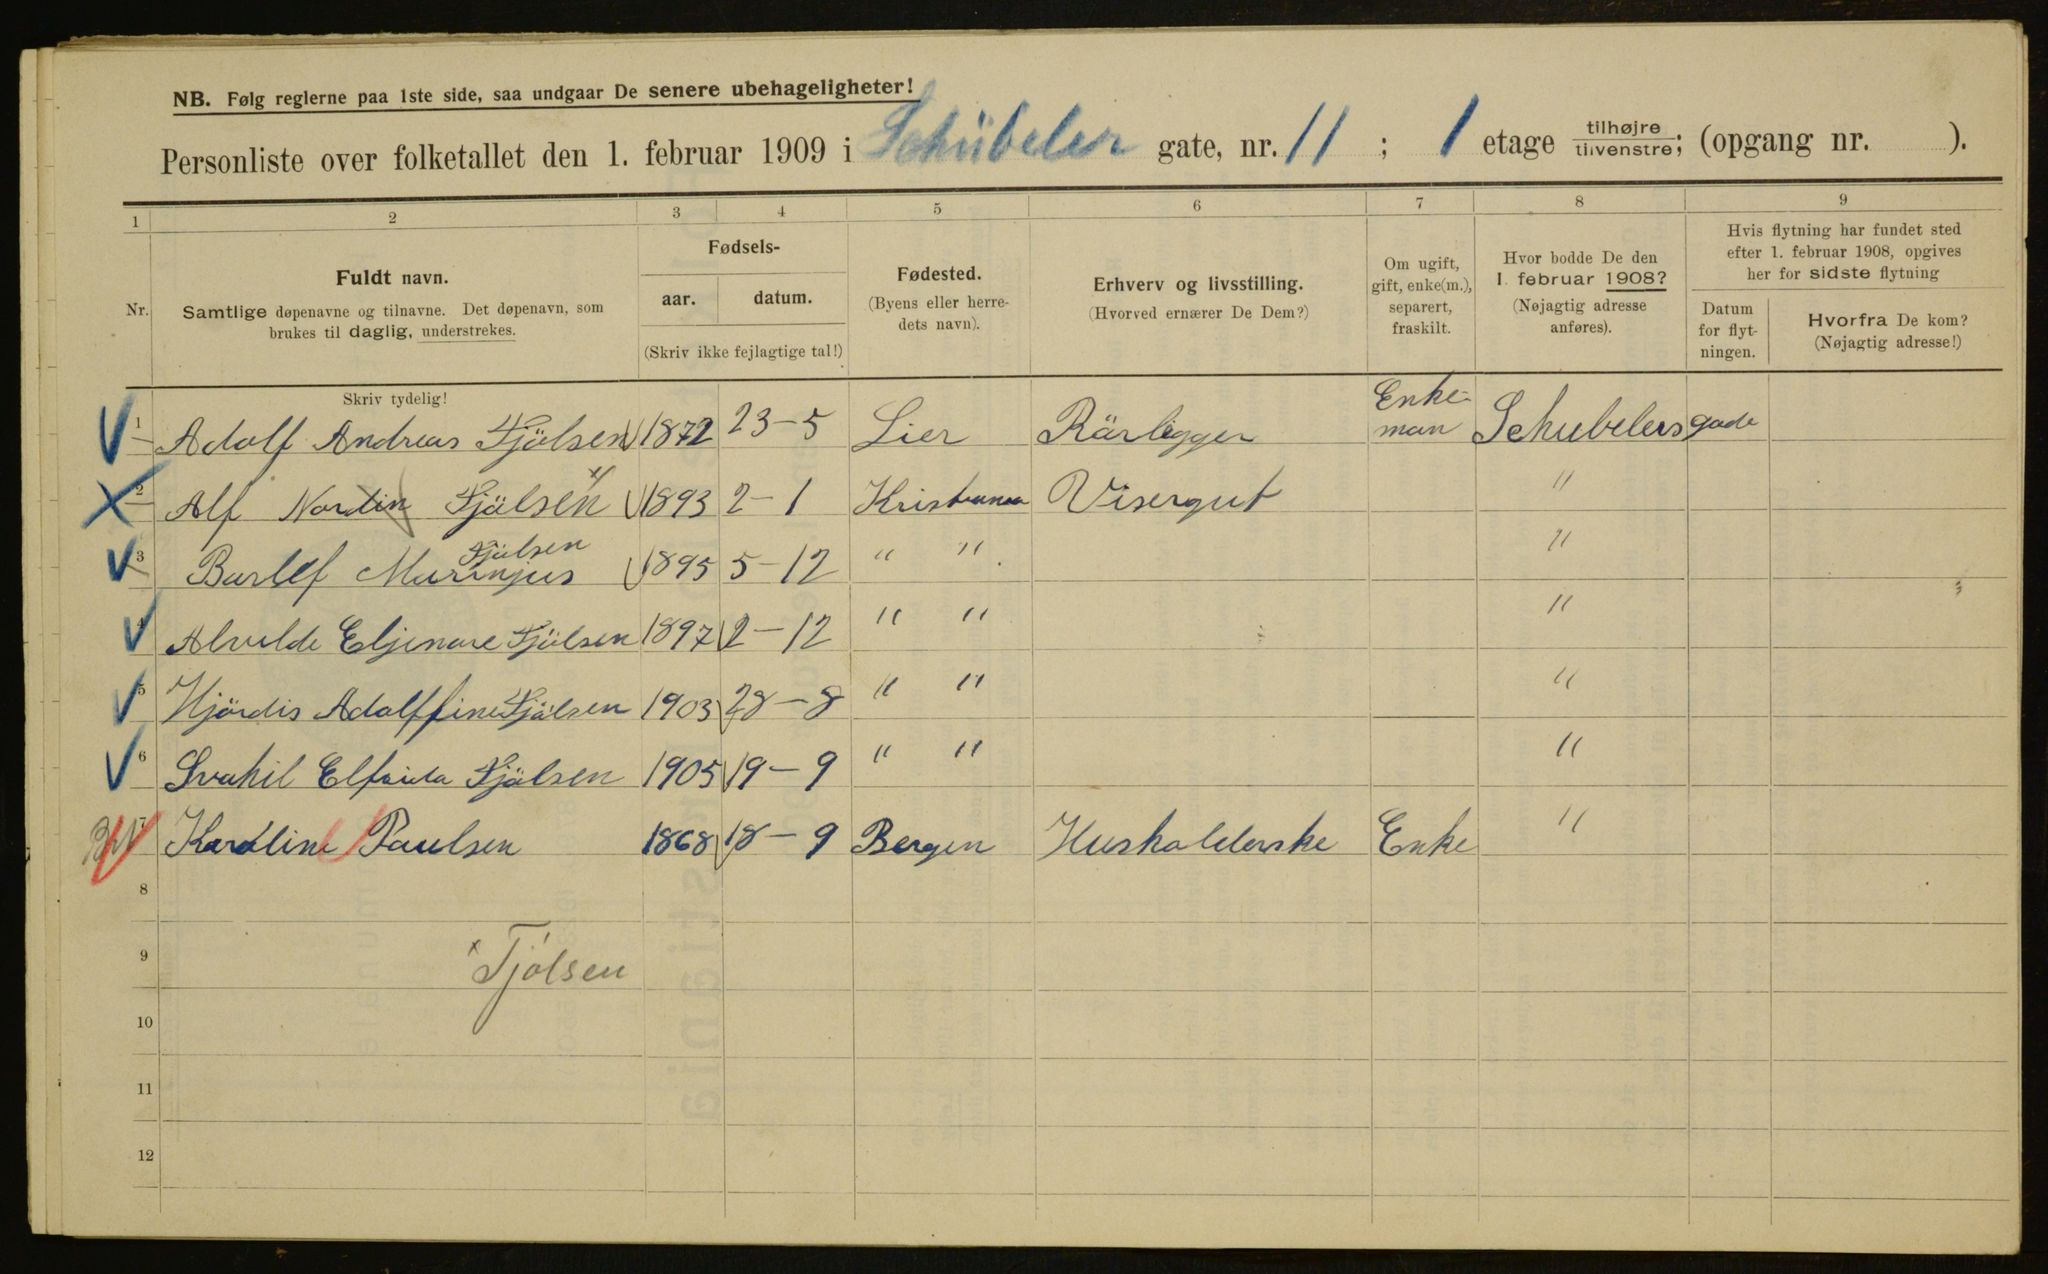 NB. Følg reglerne paa 1ste side, saa undgaar De senere ubehageligheter!
Personliste over folketallet den 1. februar 1909 i Schübeler gate, nr. 11 ; 1 etage tilhøjre tilvenstre; (opgang nr. ).
1 2 3 4 5 6 7 8 9
Nr.
Fuldt navn.
Samtlige døpenavne og tilnavne. Det døpenavn, som
brukes til daglig, understrekes.
Fødsels-
aar. datum.
(Skriv ikke fejlagtige tal!)
Fødested.
(Byens eller herre-
dets navn).
Erhverv og livsstilling.
(Hvorved ernærer De Dem?)
Om ugift,
gift, enke(m.),
separert,
fraskilt.
Hvor bodde De den
1. februar 1908?
(Nøjagtig adresse
anføres).
Hvis flytning har fundet sted
efter 1. februar 1908, opgives
her for sidste flytning
Datum
for flyt-
ningen.
Hvorfra De kom?
(Nøjagtig adresse!)
Skriv tydelig!
1 Adolf Andreas Tjölsen 1872 23-5 Lier Rärligger Enke-
man Schubelersgade
2 Alf Nordin Tjölsen 1893 2-1 Kristiania Visergut "
3 Tjölsen
Marinjus 1895 5-12 " " "
4 Alvilde Eljenore Tjölsen 1897 2-12 " " "
5 Hjördis Adolffine Tjölsen 1903 28-8 " " "
6 Elfrida Tjölsen 1905 19-9 " " "
7 Karoline Paulsen 1868 18-9 Bergen Husholderske Enke "
8
9 x Tjölsen
10
11
12